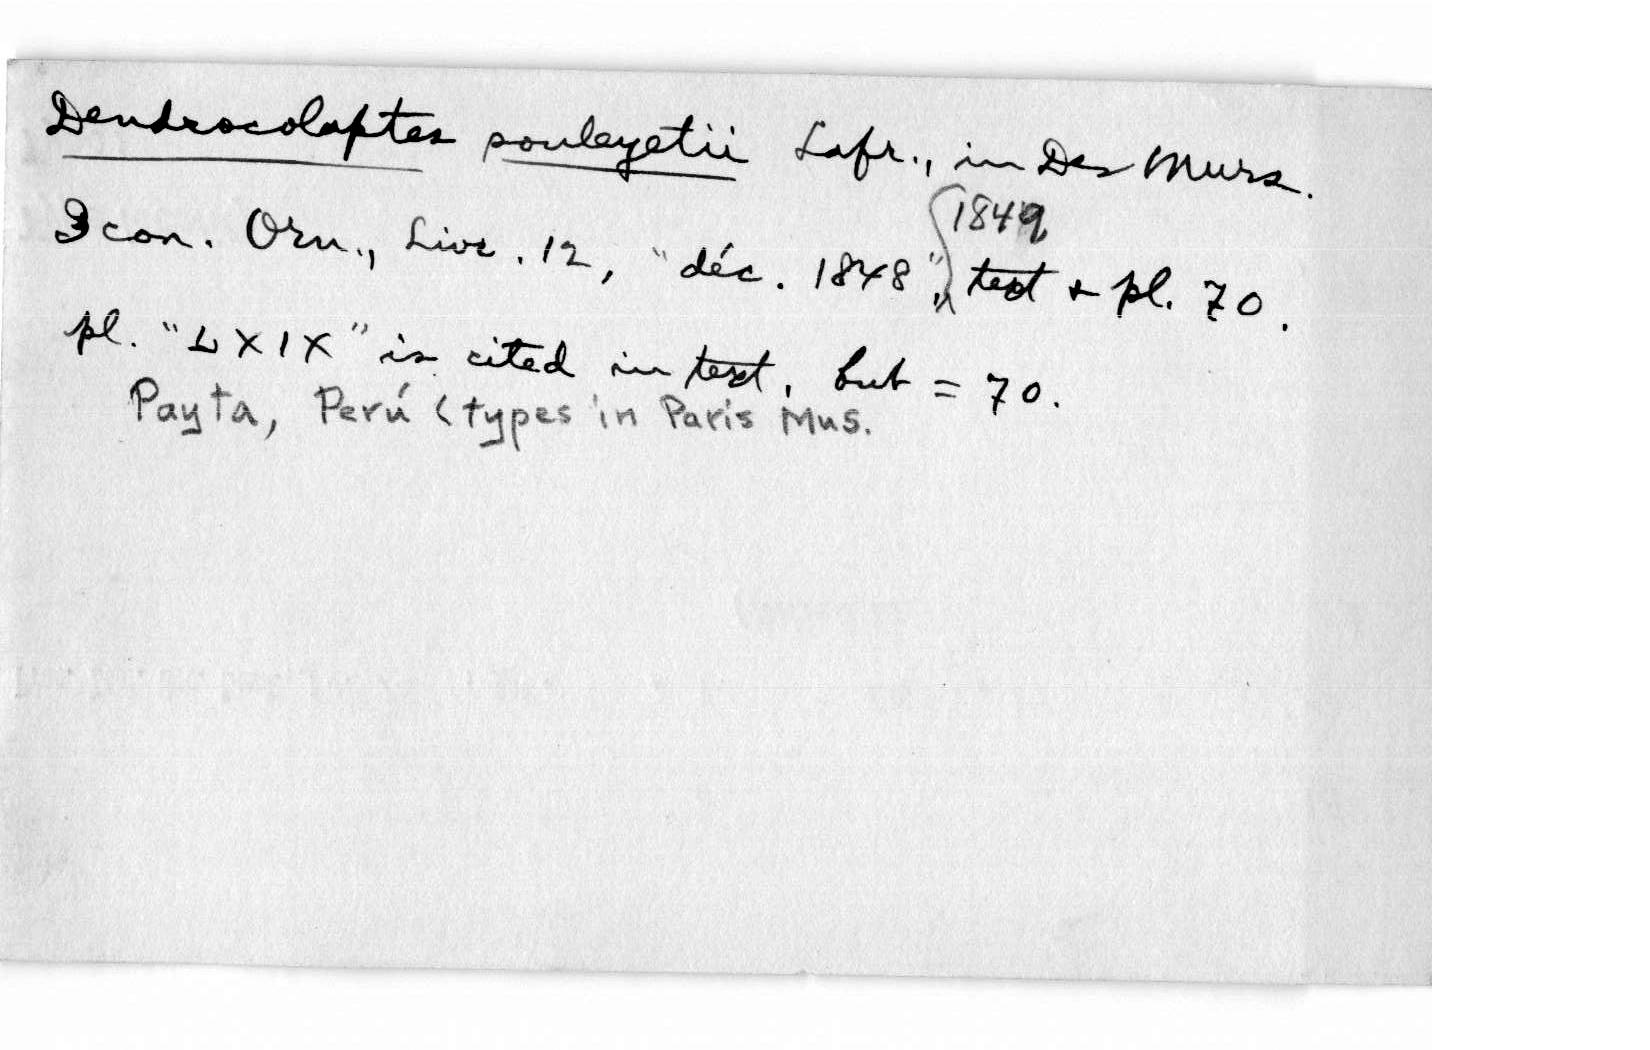 Dendrocolaptes souleyetii Lafr., in Des Murs.
1849
Icon. Orn., Livr. 12, "déc. 1848", text & pl. 70.
pl. "LXIX" is cited in text, but = 70.
Payta, Perú (types in Paris Mus.